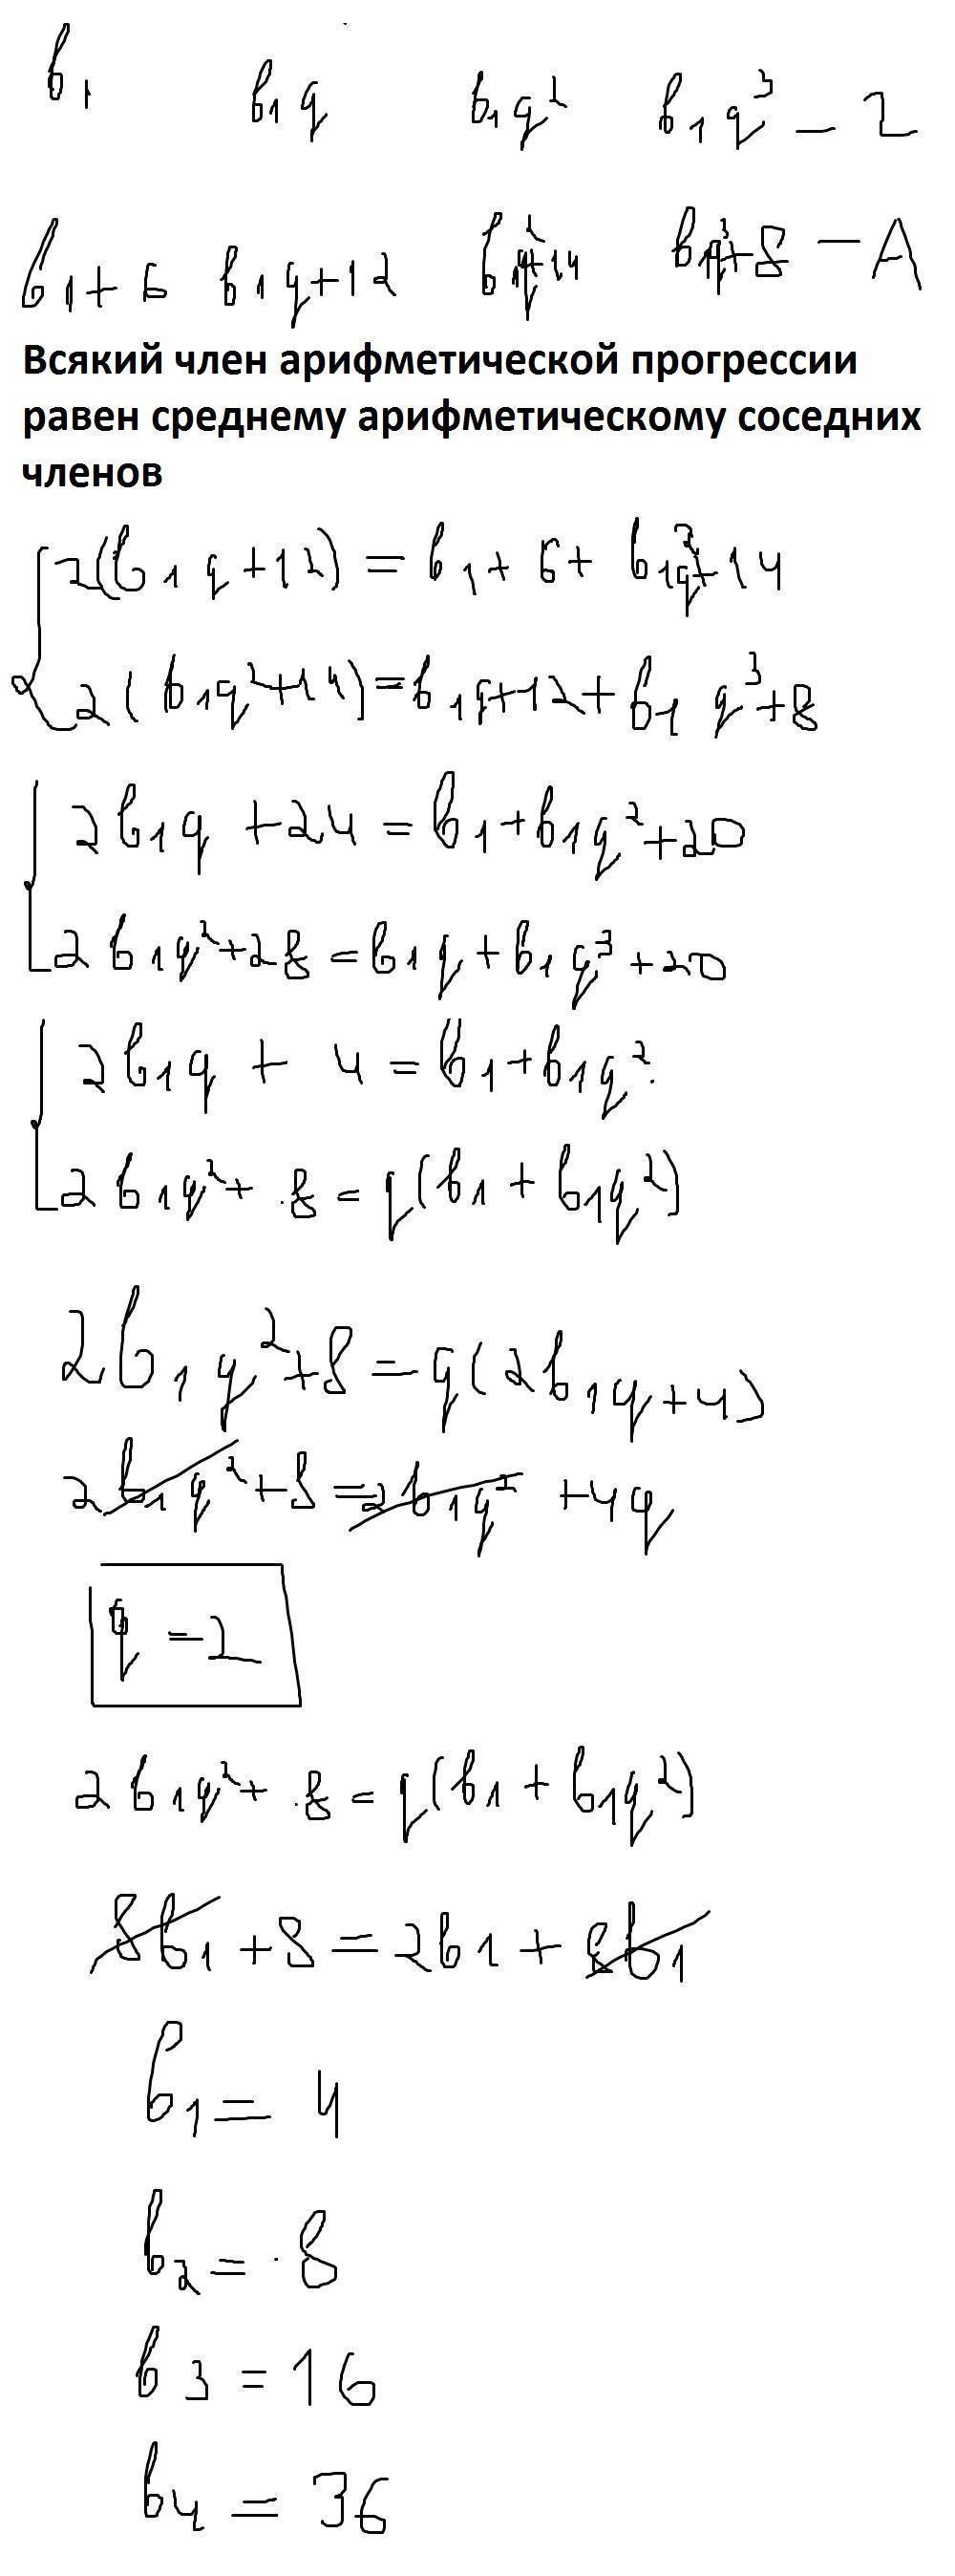 b₁ b₁q b₁q² b₁q³ – 2
b₁+6 b₁q+12 b₁q²+14 b₁q³+8 – A
Всякий член арифметической прогрессии
равен среднему арифметическому соседних
членов
2(b₁q+12) = b₁+6+ b₁q²+14
2(b₁q²+14)=b₁q+12+b₁q³+8
2b₁q +24 = b₁+b₁q²+20
2b₁q²+28 = b₁q+b₁q³+20
2b₁q + 4 = b₁+b₁q².
2b₁q²+ .8 = q(b₁+b₁q²)
2b₁q²+8=q(2b₁q+4)
2b₁q²+8=2b₁q²+4q
q =2
2b₁q²+ .8 = q(b₁+b₁q²)
8b₁+8=2b₁+8b₁
b₁= 4
b₂= .8
b3=16
b4 = 36